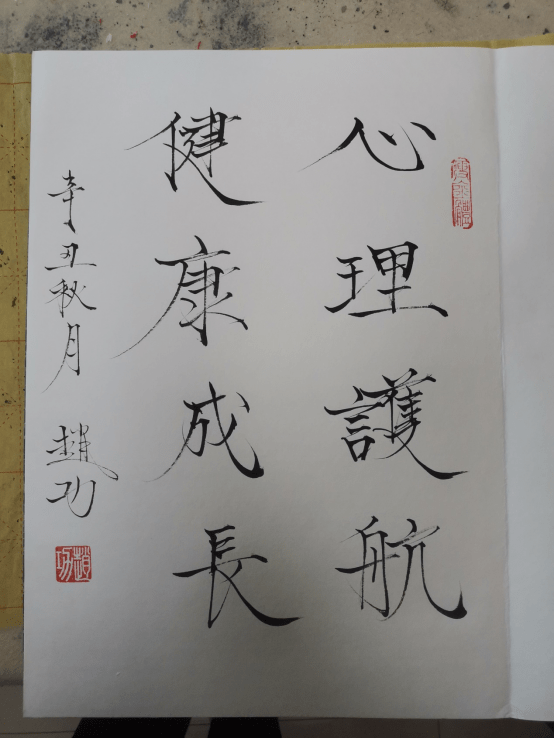 心理護航
健康成長
辛丑秋月 趙功
趙功